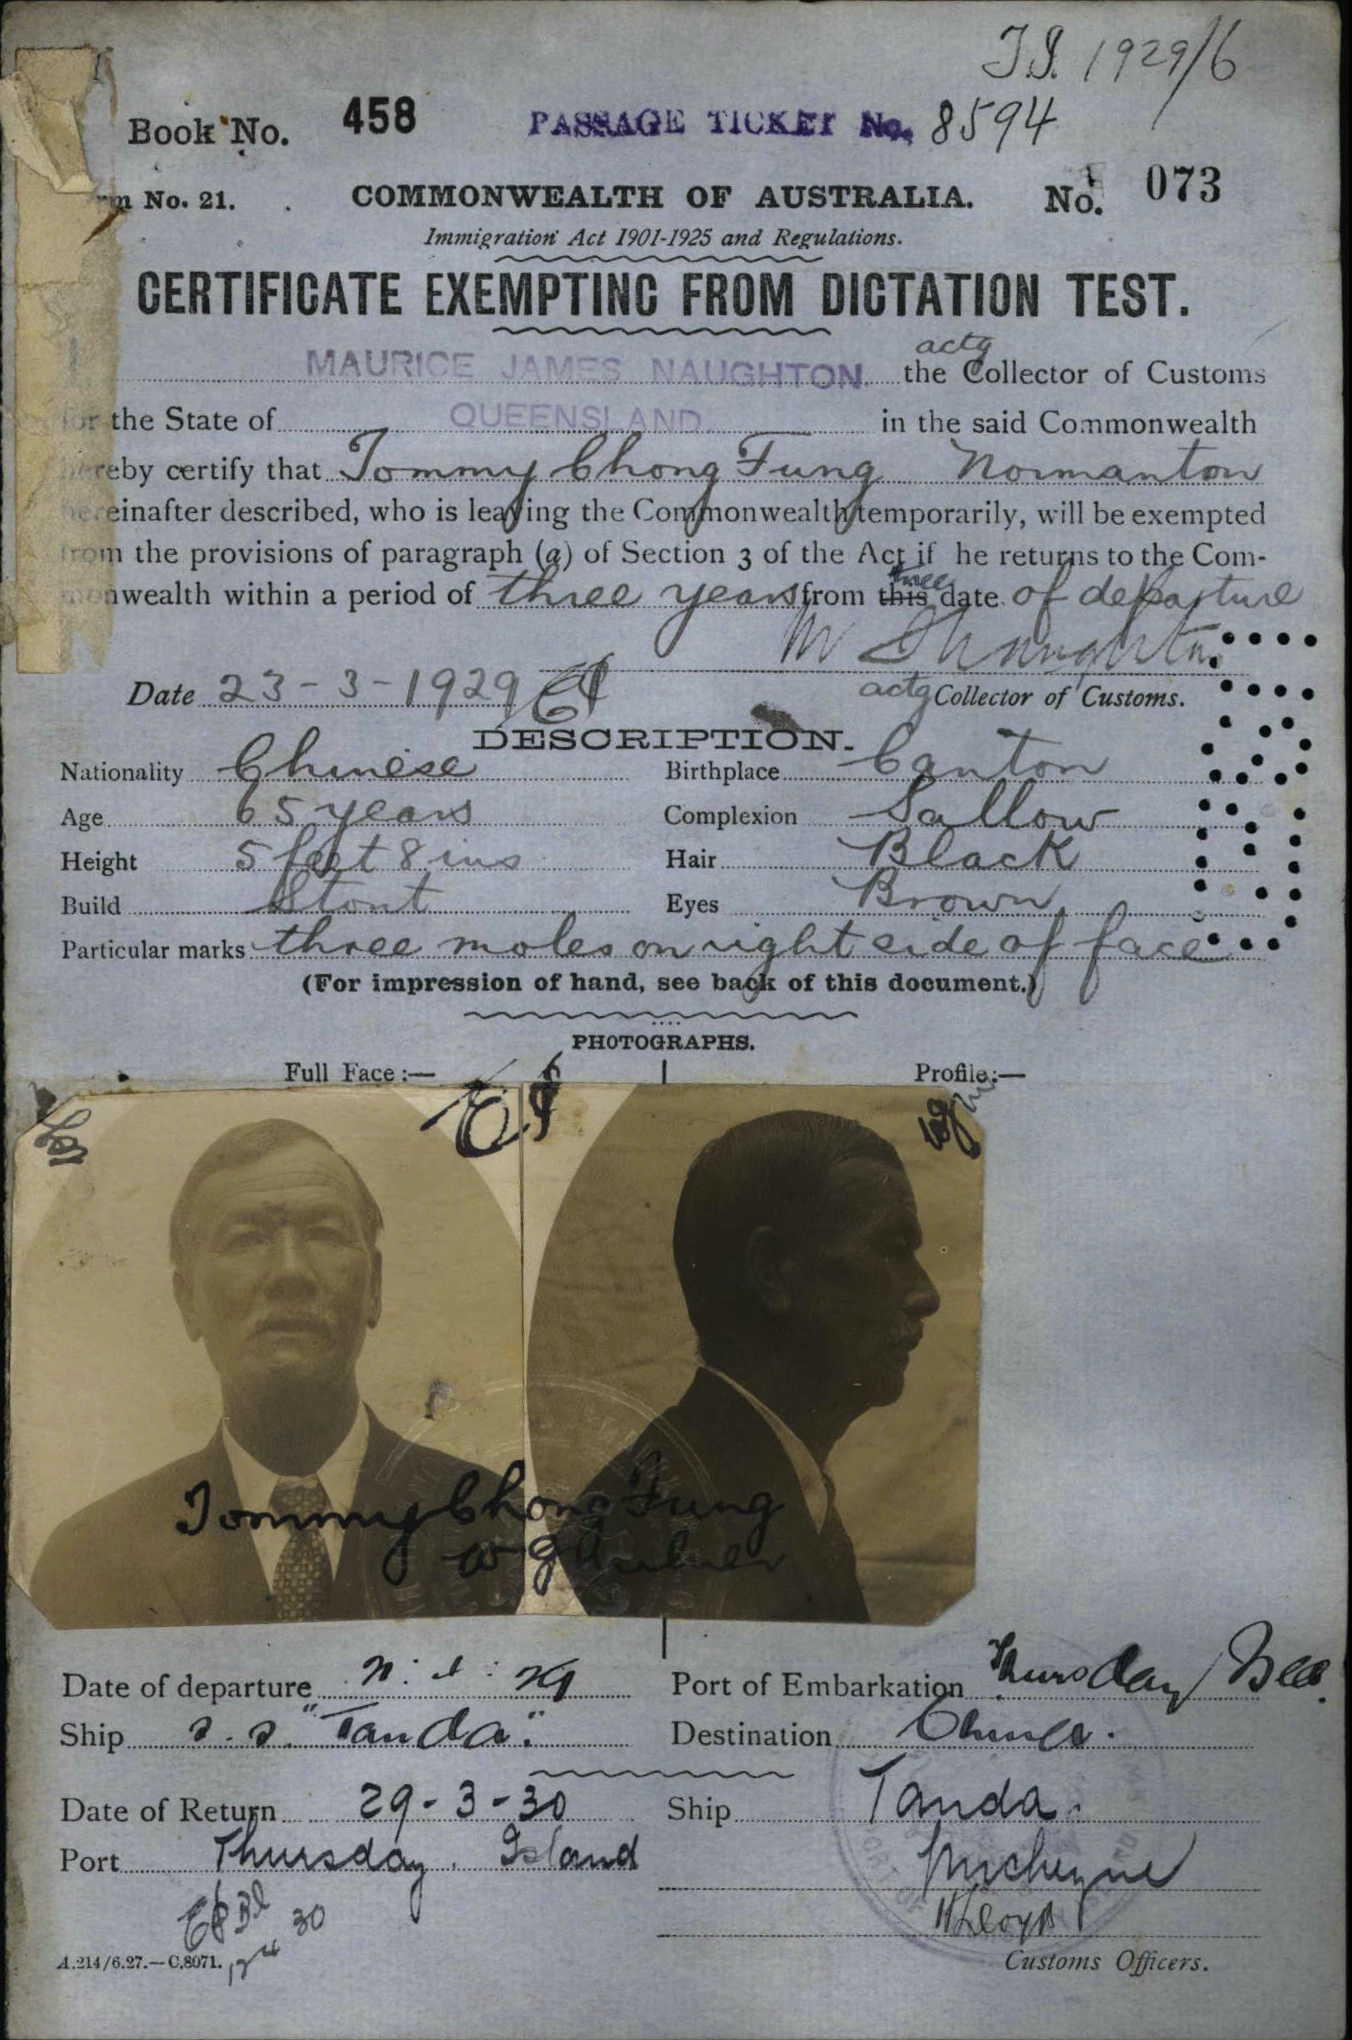 T.I. 1929/6
Book No. 458 PASSAGE TICKET No. 8594
No. 21. COMMONWEALTH OF AUSTRALIA. No. 073
Immigration Act 1901-1925 and Regulations.
CERTIFICATE EXEMPTING FROM DICTATION TEST.
actg
I MAURICE JAMES NAUGHTON the Collector of Customs
for the State of QUEENSLAND. in the said Commonwealth
hereby certify that Tommy Chong Fung Normanton
hereinafter described, who is leaving the Commonwealth temporarily, will be exempted
from the provisions of paragraph (a) of Section 3 of the Act if he returns to the Com-
monwealth within a period of three years from this date of departure
Date 23-3-1929 actg Collector of Customs.
DESCRIPTION.
Nationality Chinese Birthplace Canton
Age 65 years Complexion Sallow
Height 5 feet 8 ins Hair Black
Build Stout Eyes Brown
Particular marks three moles on right side of face
(For impression of hand, see back of this document.)
PHOTOGRAPHS.
Full Face :— Profile :—
Tommy Chong Fung
Date of departure Port of Embarkation Thursday
Ship s.s. "Tanda". Destination China.
Date of Return 29-3-30 Ship Tanda.
Port Thursday Island
30
A.214/6.27.—C.8071.
Customs Officers.